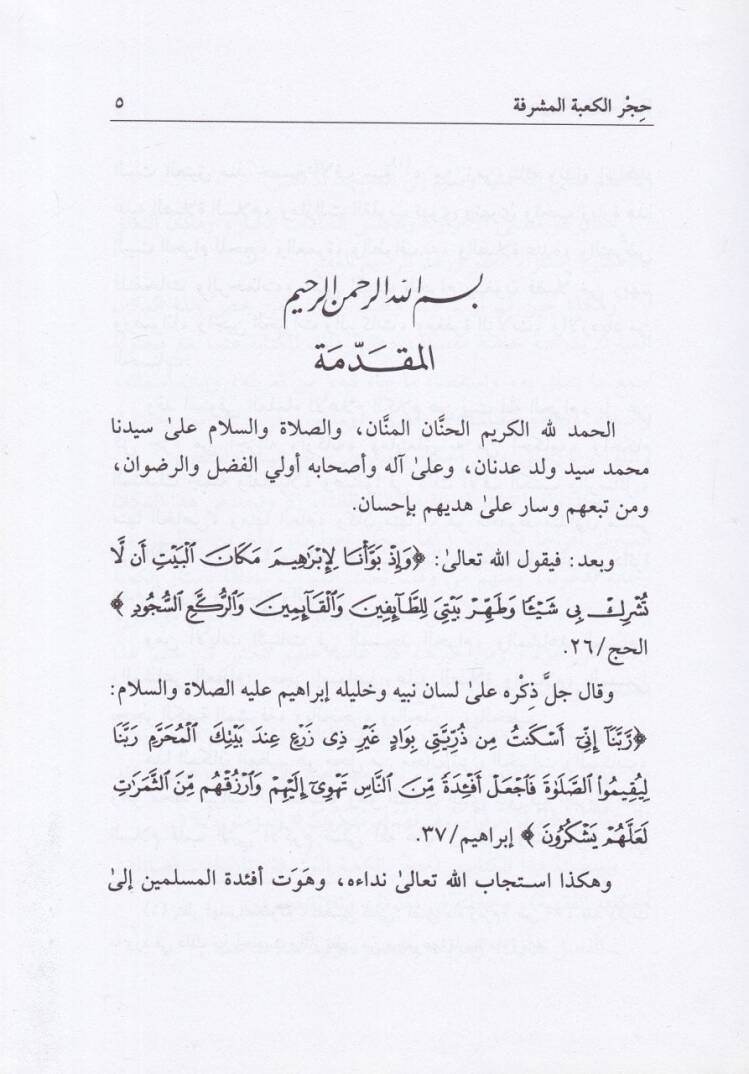 حِجْر الكعبة المشرفة ٥
بسم الله الرحمن الرحيم
المقدّمة
الحمد لله الكريم الحنَّان المنَّان، والصلاة والسلام علىٰ سيدنا
محمد سيد ولد عدنان، وعلىٰ آله وأصحابه أولي الفضل والرضوان،
ومن تبعهم وسار علىٰ هديهم بإحسان.
وبعد: فيقول الله تعالىٰ: ﴿وَإِذْ بَوَّأْنَا لِإِبْرَٰهِيمَ مَكَانَ ٱلْبَيْتِ أَن لَّا
تُشْرِكْ بِى شَيْـًٔا وَطَهِّرْ بَيْتِىَ لِلطَّآئِفِينَ وَٱلْقَآئِمِينَ وَٱلرُّكَّعِ ٱلسُّجُودِ﴾
الحج/٢٦.
وقال جلَّ ذِكْره علىٰ لسان نبيه وخليله إبراهيم عليه الصلاة والسلام:
﴿رَّبَّنَآ إِنِّىٓ أَسْكَنتُ مِن ذُرِّيَّتِى بِوَادٍ غَيْرِ ذِى زَرْعٍ عِندَ بَيْتِكَ ٱلْمُحَرَّمِ رَبَّنَا
لِيُقِيمُوا۟ ٱلصَّلَوٰةَ فَٱجْعَلْ أَفْـِٔدَةً مِّنَ ٱلنَّاسِ تَهْوِىٓ إِلَيْهِمْ وَٱرْزُقْهُم مِّنَ ٱلثَّمَرَٰتِ
لَعَلَّهُمْ يَشْكُرُونَ﴾ إبراهيم/٣٧.
وهكذا استجاب الله تعالىٰ نداءه، وهَوَت أفئدة المسلمين إلىٰ